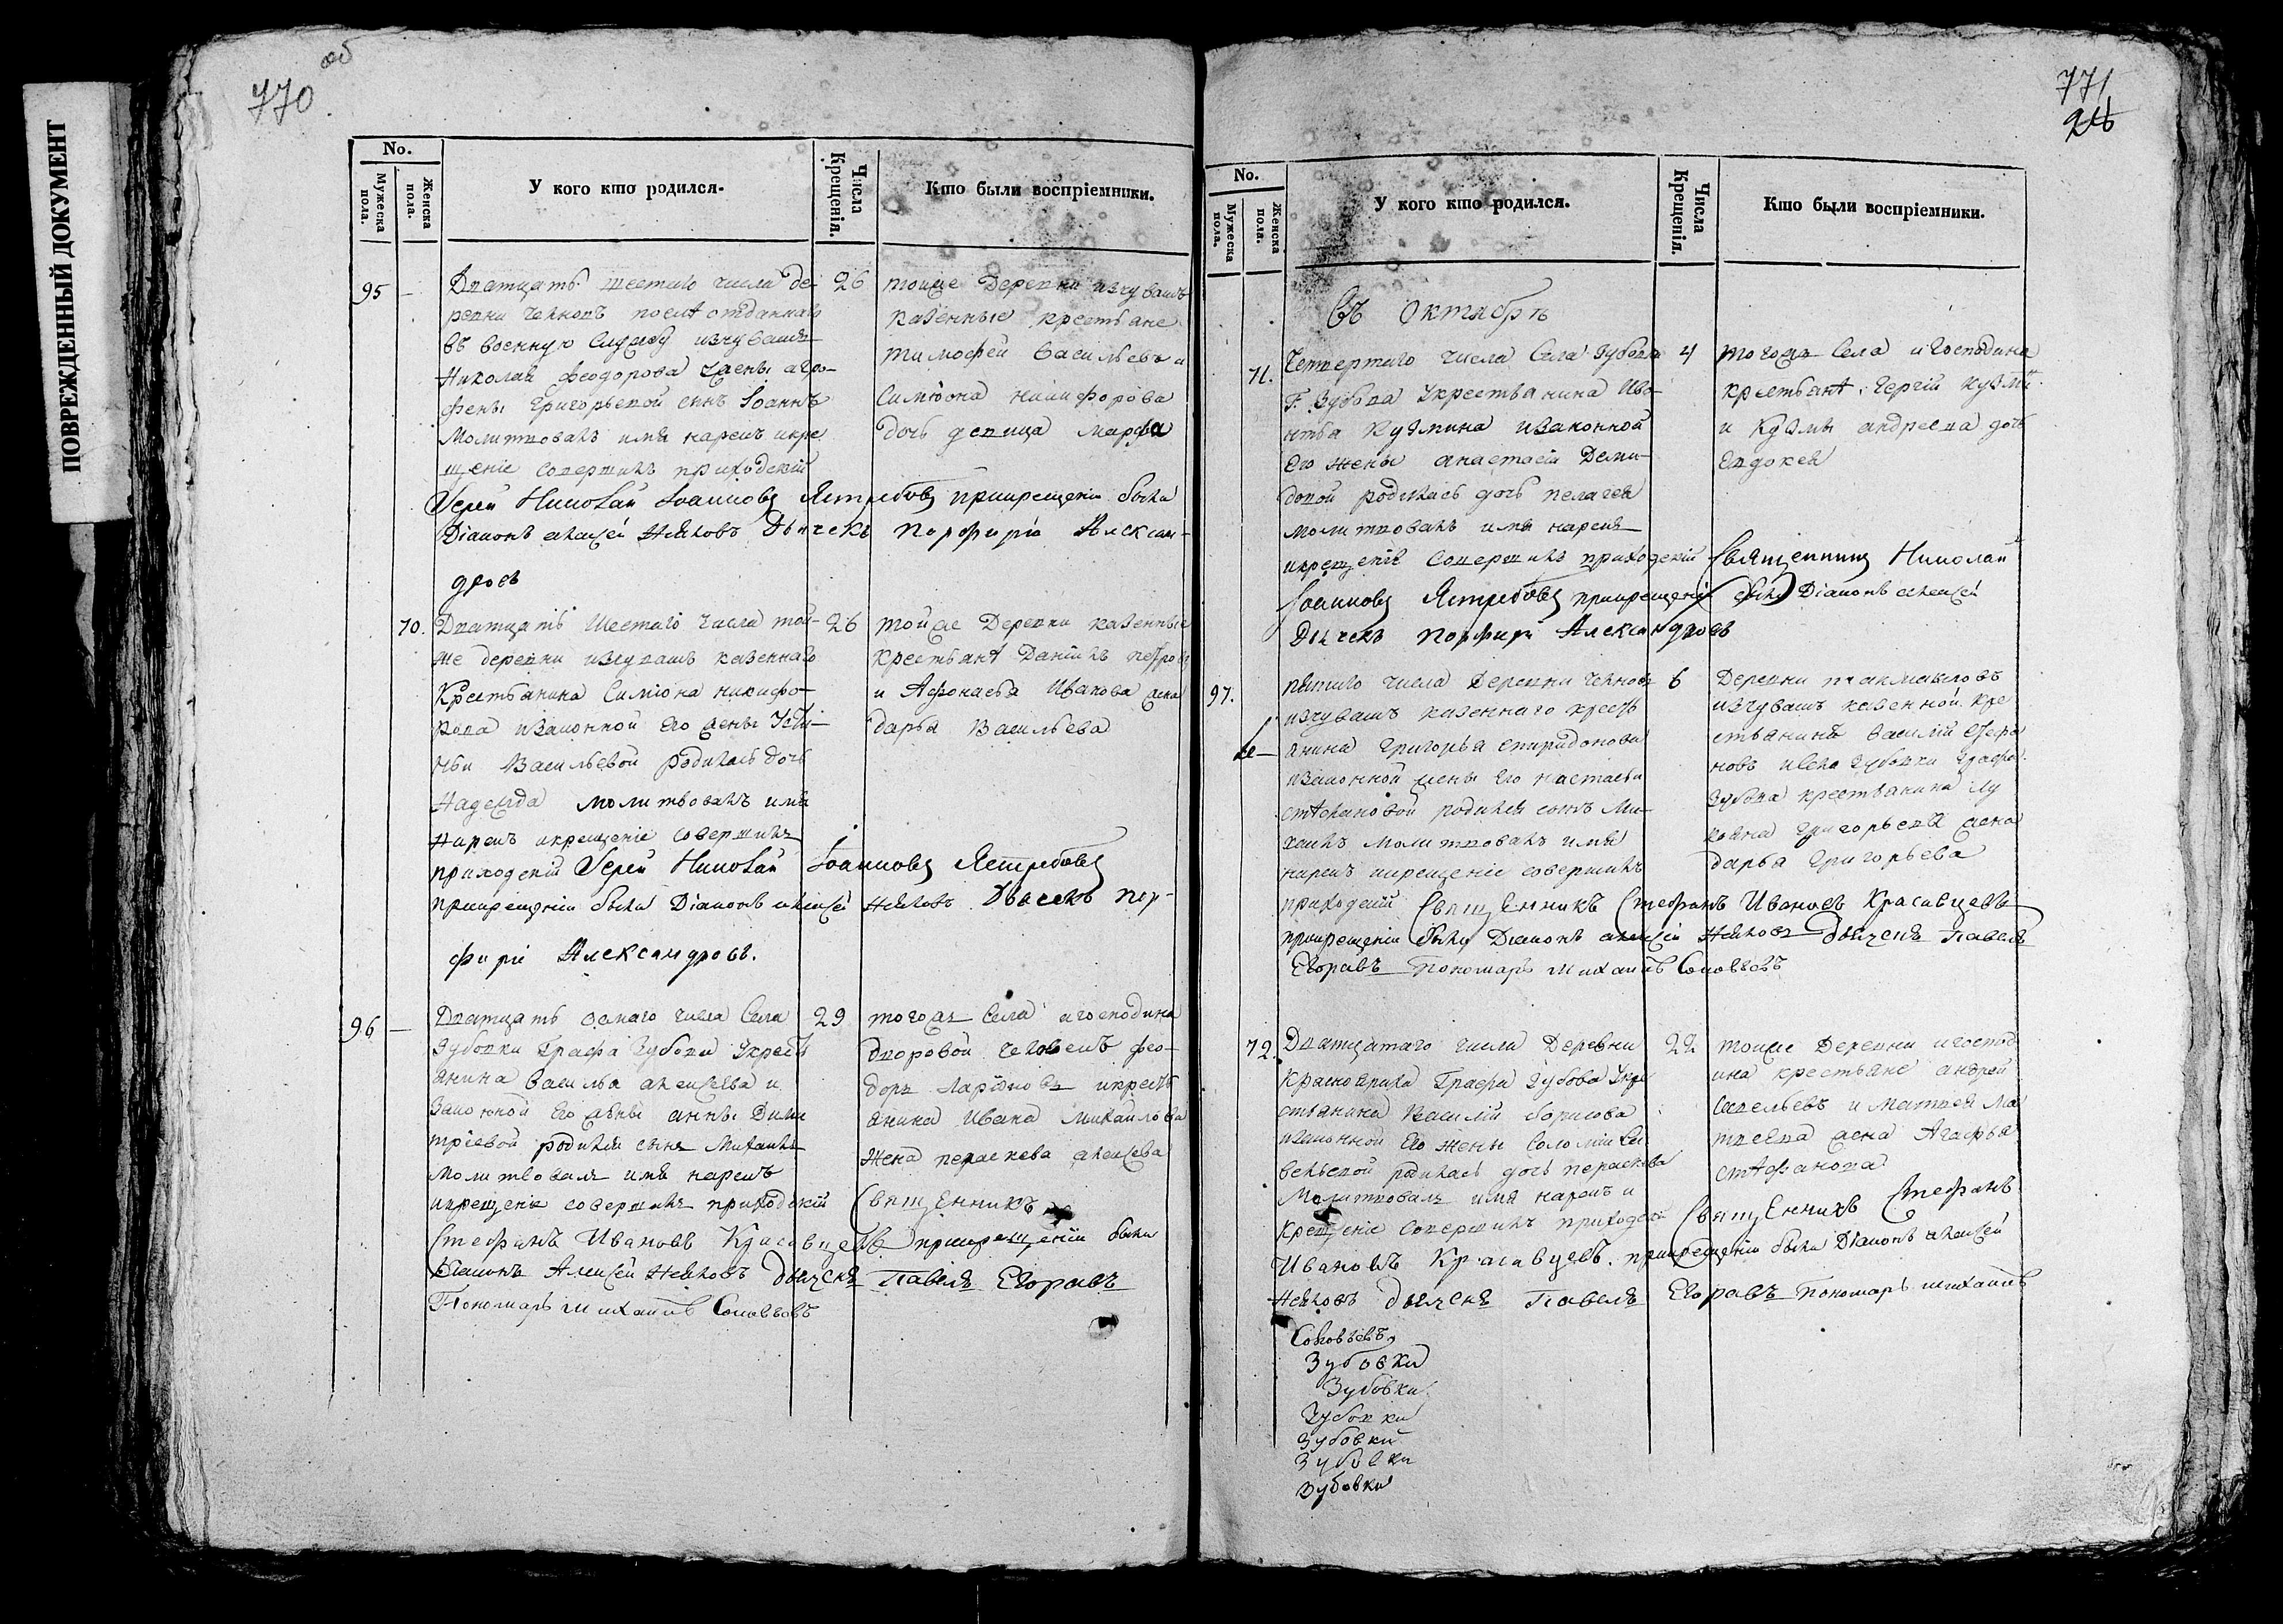 ПОВРЕЖДЕННЫЙ ДОКУМЕНТ
770 об
No.
Мужеска пола.
Женска пола.
У кого кто родился.
Числа Крещенія.
Кто были воспріемники.
95 —
Дватцать шестаго числа де-
ревни
въ военную службу
Николая Феодорова жены агро-
фены Григорьевой сынъ Іоаннъ
молитвовалъ имя наречъ икре
щеніе совершилъ приходскій
Іерей Николай Іоанновъ Ястребовъ прикрещеніи были
Діаконъ алексей Дьячекъ Порфирій Алексан-
дровъ
26
тойже Деревни изчувашъ
казенные крестьяне
тимофей васильевъ и
Симіона никифорова
дочь девица марфа
70.
Дватцать Шестаго числа той-
же деревни изчувашъ казеннаго
Крестьянина Симіона никифо-
рова изаконной его жены Усти-
ньи Васильевой родилась дочь
Надежда молитвовалъ имя
наречъ икрещеніе совершилъ
приходскій Іерей Николай Іоанновъ Ястребовъ
прикрещеніи были Діаконъ алексей Дьячекъ Пор-
фирій Александровъ.
26
тойже Деревни казенные
крестьянѣ Даніилъ петровъ
и Афонасья Иванова жена
дарья Васильева
96 —
Дватцать осмаго числа Села
Зубовки Графа Зубова Укресть
янина василья алексеева и
законной его жены анны Дими
тріевой родился сынъ Михаилъ
молитвовалъ имя наречъ
икрещеніе совершилъ приходскій Священникъ
Стефанъ Ивановъ Красавцевъ прикрещеніи были
Діаконъ Алексей дьячекъ Павелъ Егоравъ
Пономарь михаилъ Соловьовъ
29
тогожъ Села игосподина
дворовой человекъ фео-
доръ икресть
янина Ивана Михайлова
жена пераскева алексеева
771
No.
Мужеска пола.
Женска пола.
У кого кто родился.
Числа Крещенія.
Кто были воспріемники.
въ Октябрѣ
71.
Четвертаго числа Села Зубовки
Г. Зубова Укрестьянина
Кузмина изаконной
Его жены анастасіи Деми-
довой родилась дочь пелагея
молитвовалъ имя нарекъ
икрещеніе совершилъ приходскій Священникъ Николай
Іоанновъ Ястребовъ прикрещеніи были Діаконъ алексей
Дьячекъ Порфирій Александровъ
4
тогожъ Села и Господина
крестьянѣ: Сергій
и Кузмы андреева дочь
Евдокея
97.
пятаго числа Деревни
изчувашъ казеннаго кресть
янина Григорья спиридонова
изаконной жены его настасьи
степановой родился сынъ Ми-
хаилъ молитвовалъ имя
наречъ икрещеніе совершилъ
приходскій Священникъ Стефанъ Ивановъ Красавцевъ
прикрещеніи были Діаконъ алексей дьячекъ Павелъ
Егоравъ Пономарь михаилъ Соловьовъ
6
Деревни
изчувашъ казенной кре
стьянинъ василій стефа
новъ исела Зубовки Графа
Зубова крестьянина Лу
кояна григорьева жена
дарья Григорьева
72.
Дватцатаго числа Деревни
Краснояриха Графа Зубова Укре
стьянина Василія борисова
изаконной Его жены Соломіи Са
вельевой родилась дочь пераскева
Молитвовалъ имя наречъ и
крещеніе совершилъ приходскій Священникъ Стефанъ
Ивановъ Красавцевъ. прикрещеніи были Діаконъ алексей
дьячекъ Павелъ Егоравъ Пономарь михаилъ
Соловьевъ,
22
тойже Деревни игоспод
ина крестьяне андрей
Савельевъ и матвея ма
твеева жена Агафья
стефанова
Зубовки
Зубовки
Зубовки
Зубовки
Зубовки
Зубовки